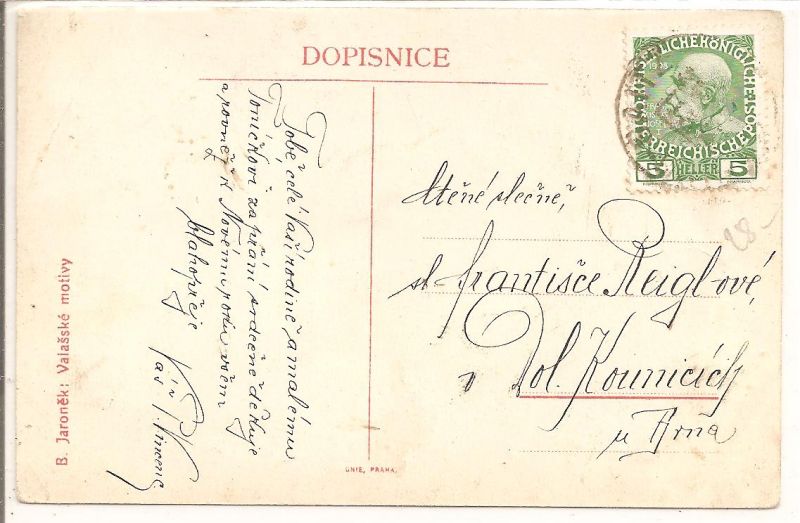 DOPISNICE
Tobě, celé Vaší rodině a malému
Toníčkovi za přání srdečně děkuje
a rovněž k Novému roku všem
blahopřeje
Váš P. Vincenc
B. Jaroněk: Valašské motivy
UNIE, PRAHA.
KAISERLICHE KÖNIGLICHE ÖSTERREICHISCHE POST
5 HELLER 5
Ctěné slečně,
sl. Františce Reiglové,
v Dol. Kounicích
u Brna
28-